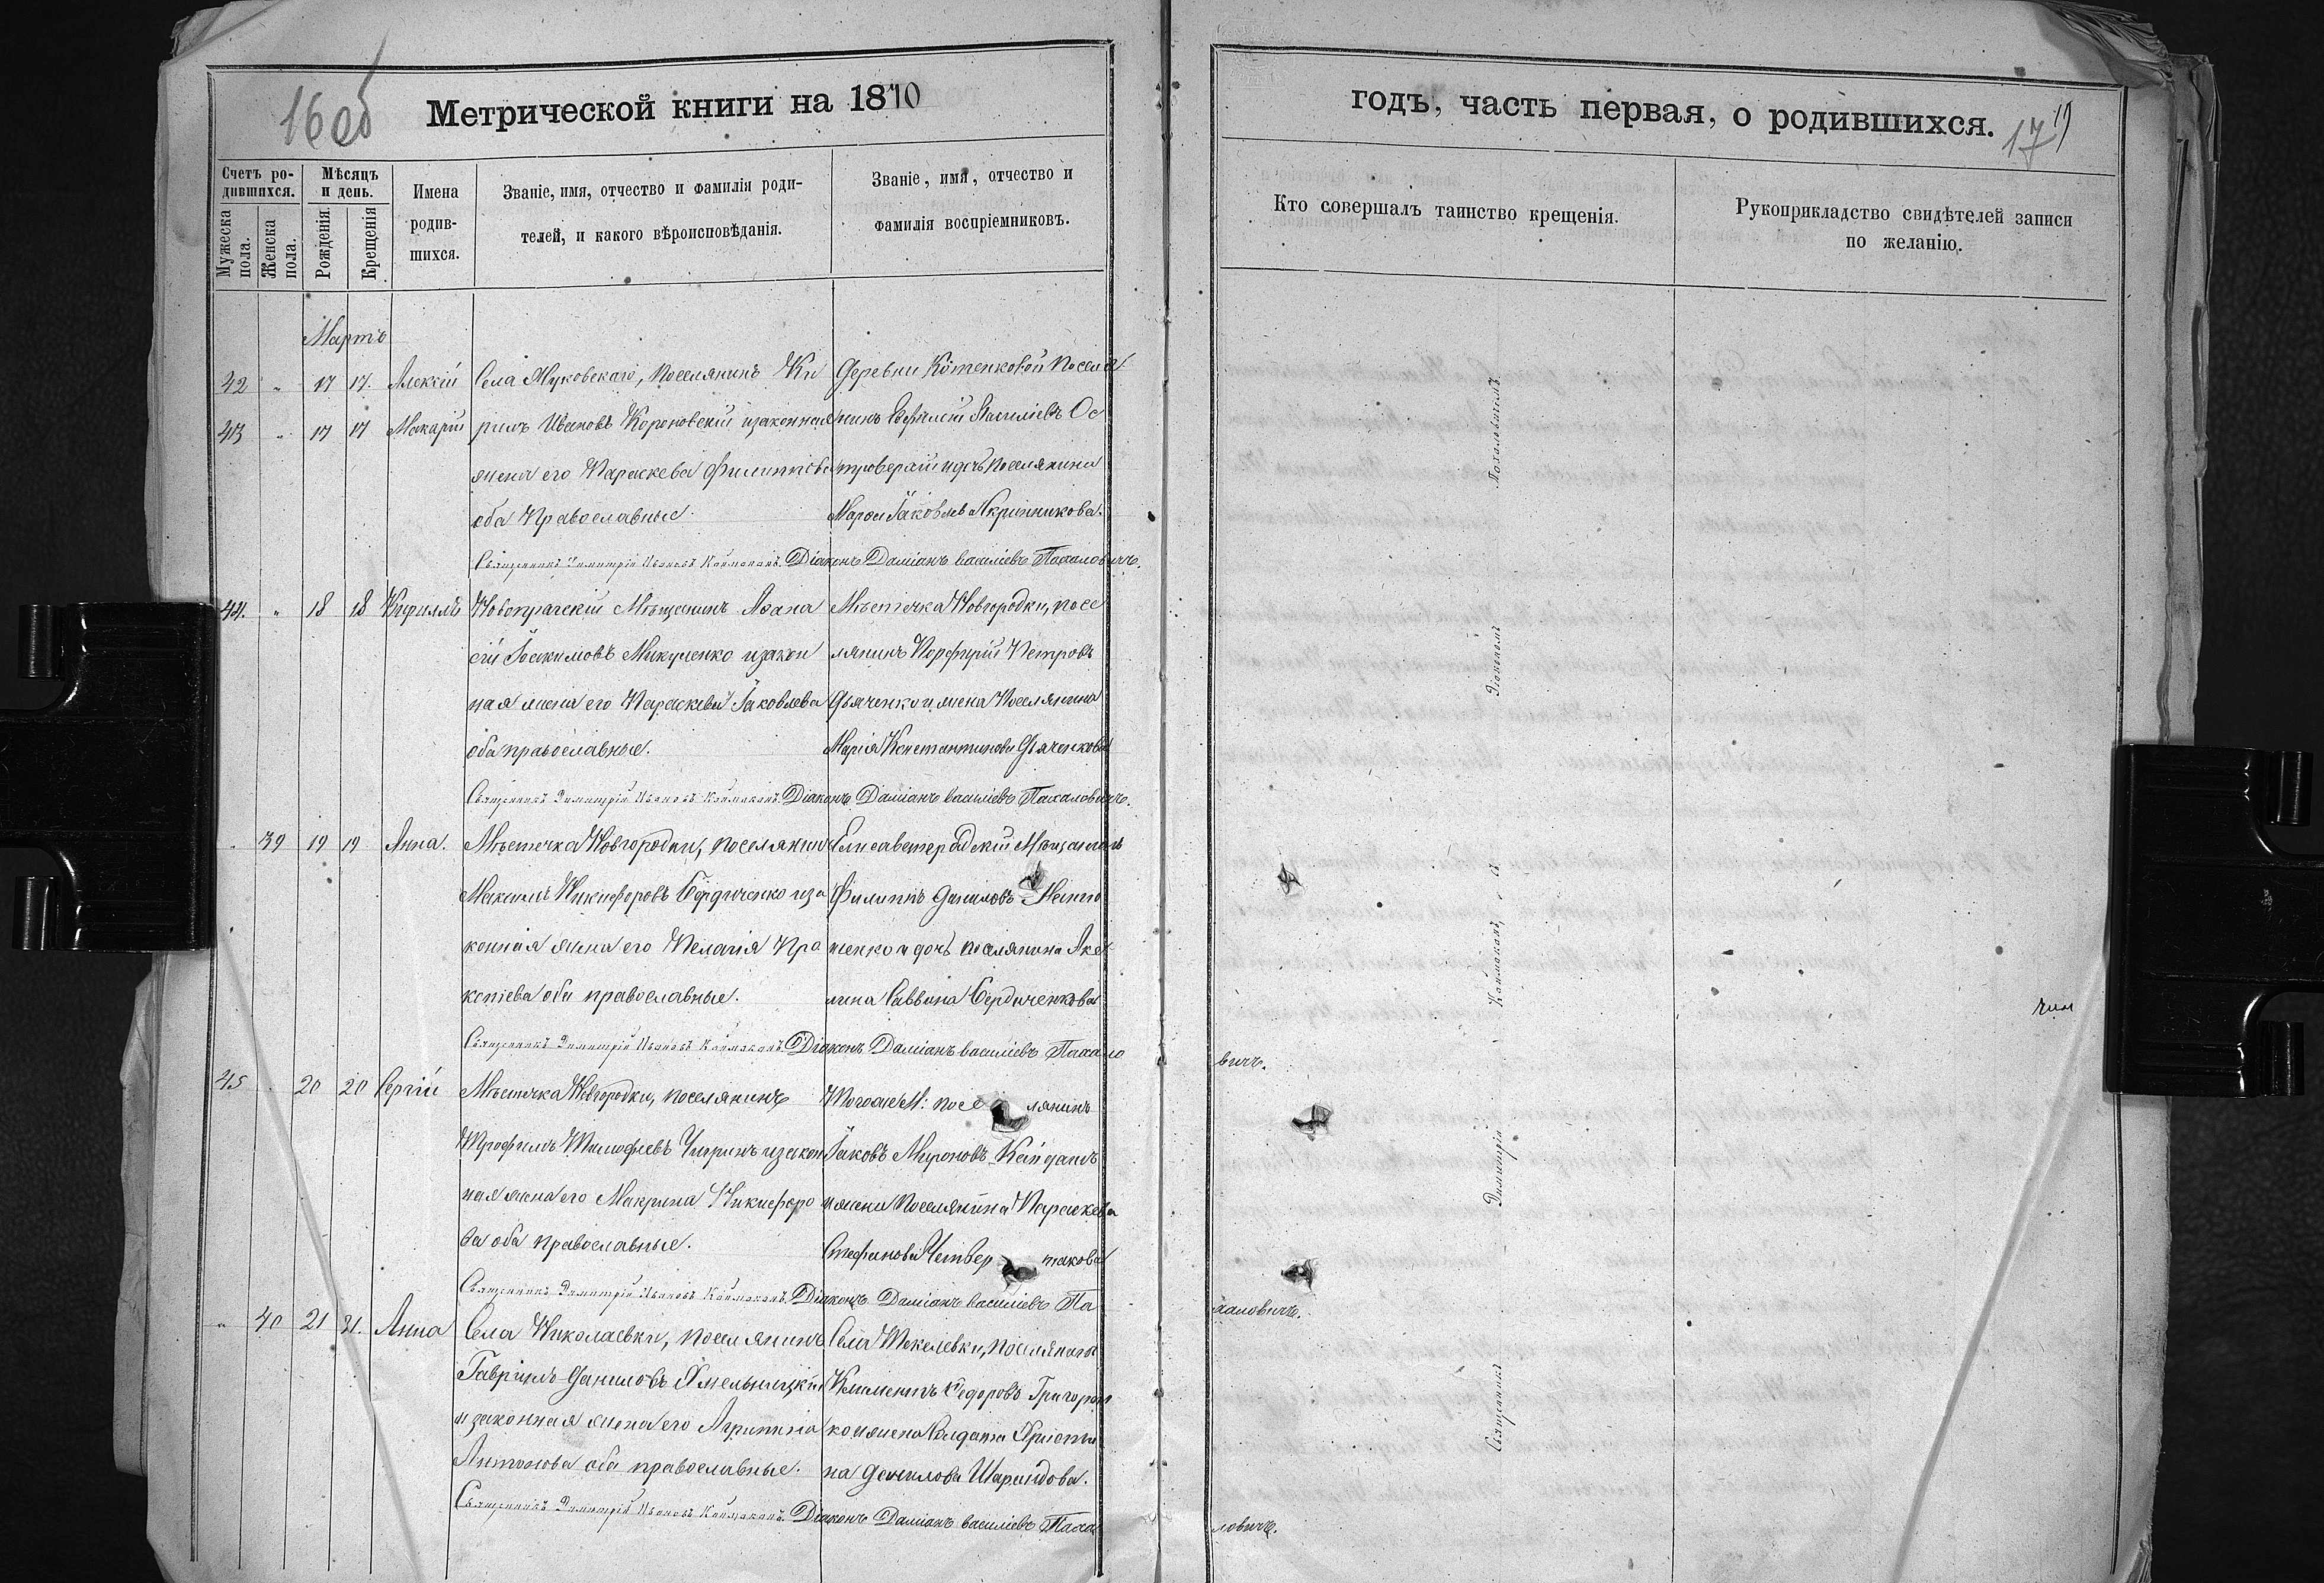 16 об
Метрической книги на 1870
годъ, часть первая, о родившихся.
17
Счетъ родившихся.
Мужеска пола.
Женска пола.
Мѣсяцъ и день.
Рожденія.
Крещенія
Имена родившихся.
Званіе, имя, отчество и фамилія родителей, и какого вѣроисповѣданія.
Званіе, имя, отчество и фамилія воспріемниковъ.
Кто совершалъ таинство крещенія.
Рукоприкладство свидѣтелей записи по желанію.
Мартъ
42 " 17 17. Алексій
43 " 17 17 Макарій
Села Муковскаго, поселянинъ Ки
рилъ Ивановъ Короновскій изаконная
жена его Параскева Филиппова
оба Православные.
Деревни Котенковой поселя
нинъ Евфимій Василіевъ Ос
троверхій и дочь поселянина
Іаковлева Скрипникова.
Священникъ Димитрій Ивановъ Каймаканъ. Діаконъ Даміанъ Василіевъ Пахаловичъ.
44. " 18 18 Кириллъ
Новопражскій Мѣщанинъ Афана
сій Іоакимовъ Микуленко изакон
ная жена его Параскева Іаковлева
оба православные.
Мѣстечка Новгородки, посе
лянинъ Порфирій Петровъ
Дьяченко и жена Поселянина
Марія Константинова Дьяченкова
Священникъ Димитрій Ивановъ Каймаканъ. Діаконъ Даміанъ Василіевъ Пахаловичъ.
" 39 19 19 Анна.
Мѣстечка Новгородки, поселянинъ
Максимъ Никифоровъ Бердиченко иза
конная жена его Пелагія Про
копіева оба православные.
Елисаветградскій Мѣщанинъ
Филиппъ Даниловъ
тенко и дочь поселянина Аке
лина Саввина Бердиченкова
Священникъ Димитрій Ивановъ Каймаканъ. Діаконъ Даміанъ Василіевъ Пахало
вичъ.
45 " 20 20 Сергій
Мѣстечка Новгородки, поселянинъ
Трофимъ Тимофеевъ Чигринъ изакон
ная жена его Макрина Никифоро
ва оба православные.
Тогоже М: посе лянинъ
Іаковъ Мироновъ Кайданъ
и жена Поселянина Параскева
Стефанова Четвер такова
Священникъ Димитрій Ивановъ Каймаканъ. Діаконъ Даміанъ Василіевъ Па
халовичъ.
" 40 21 21. Анна
Села Николаевки, поселянинъ
Гавріилъ Даниловъ Хмельницкій
изаконная жена его Агрипина
Антонова оба православные.
Села Текелевки, поселянинъ
Климентъ Федоровъ Григорен
ко и жена Солдата Христи
на Данилова Шарандова.
Священникъ Димитрій Ивановъ Каймаканъ. Діаконъ Даміанъ Василіевъ Паха
ловичъ.
Священникъ Димитрій Каймаканъ, съ Діакономъ Пахаловичемъ